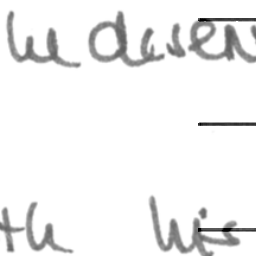 he deser
th his